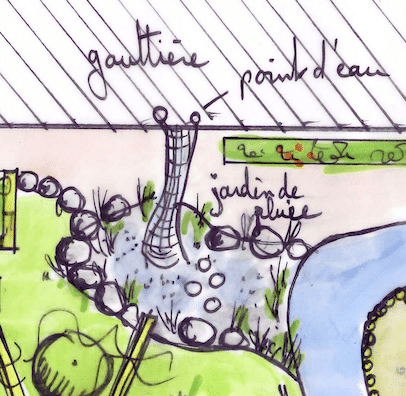 gouttière
point d'eau
jardin de
pluie